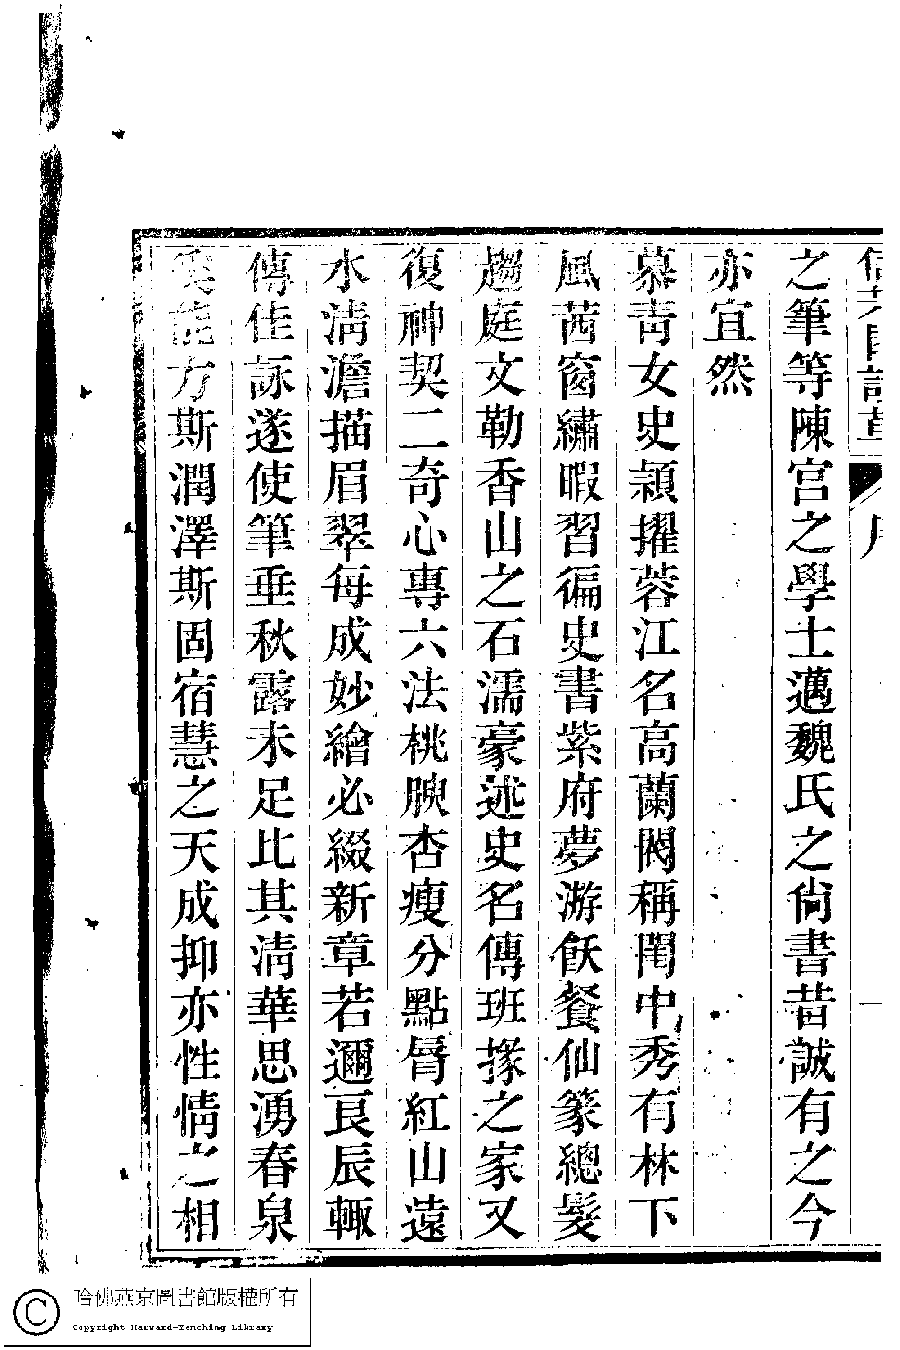 之筆等陳宮之學士邁魏氏之尙書昔誠有之今
亦宜然
慕靑女史頴擢蓉江名高蘭閎稱閨中秀有林下
風茜窗繡暇習徧史書紫府夢游飫餐仙篆總髮
趨庭文勒香山之石濡豪述史名傳班掾之家又
復神契二奇心專六法桃腴杏瘦分點脣紅山遠
水淸澹描眉翠每成妙繪必綴新章若邇良辰輒
傳佳詠遂使筆垂秋露未足比其淸華思湧春泉
方斯潤澤斯固宿慧之天成抑亦性情之相
哈佛燕京圖書館版權所有
Copyright Harvard-Yenching Library